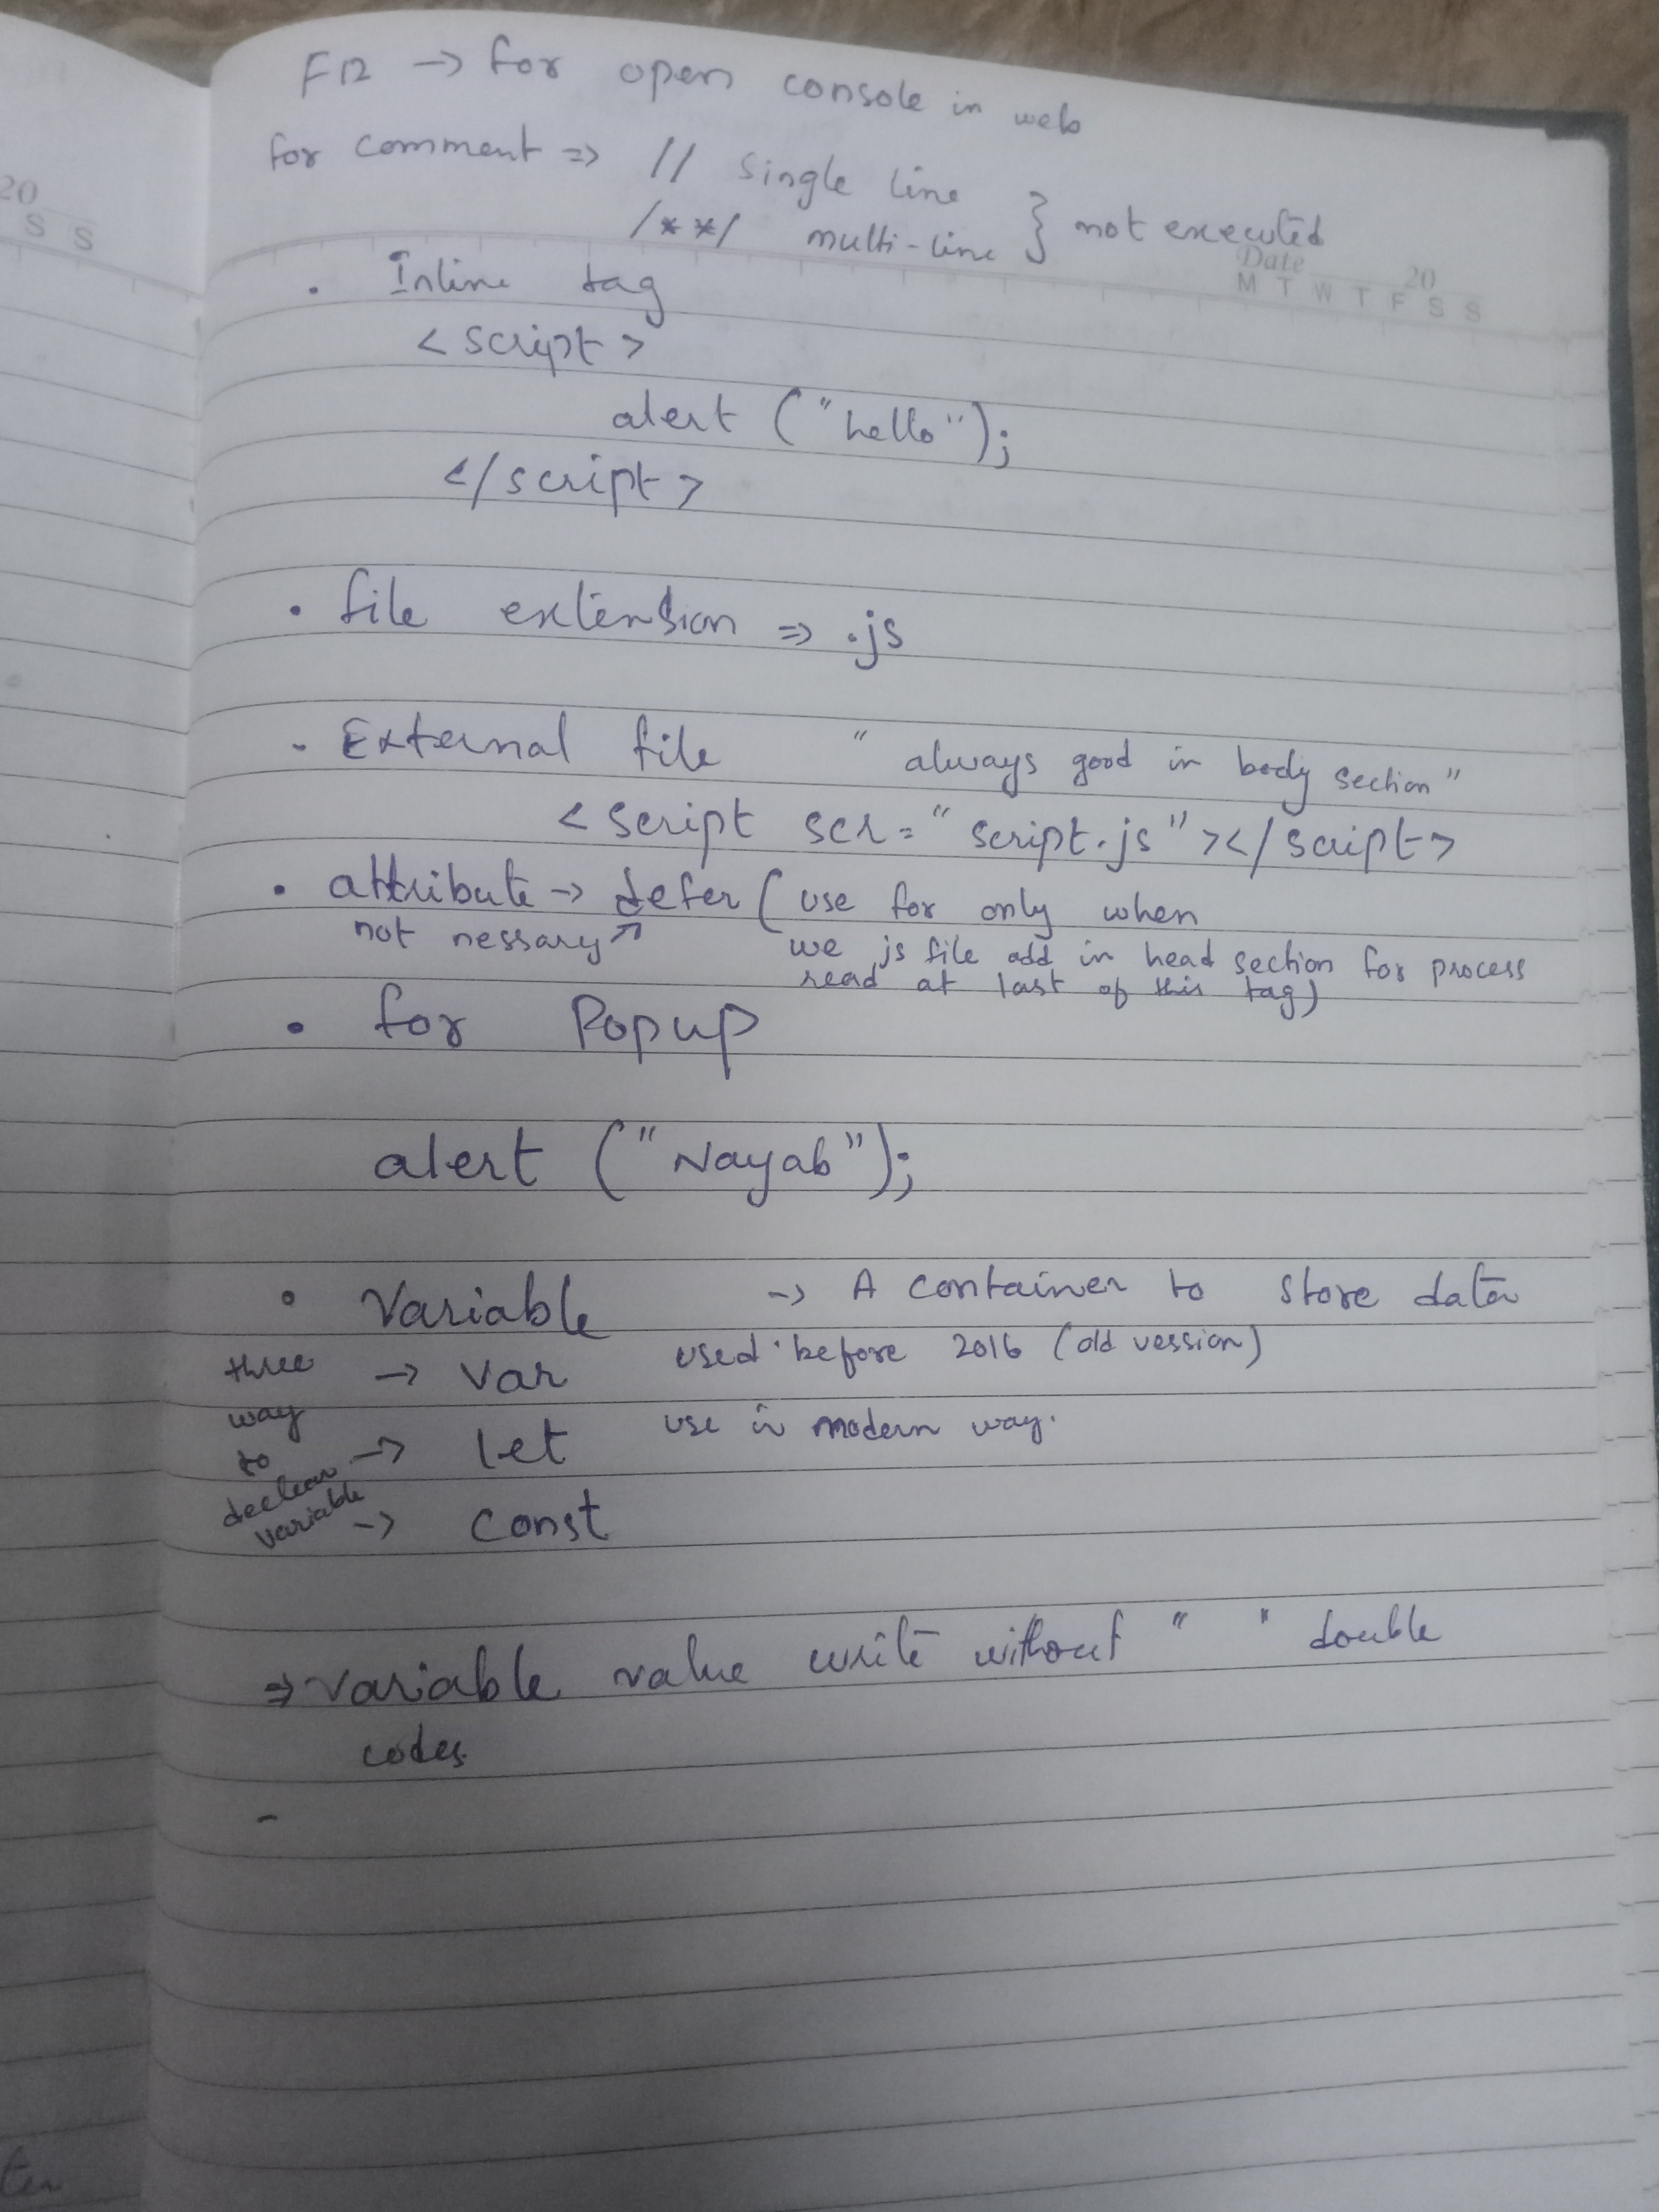 F12 -> for open console in web
for comment => // single line
/**/ multi-line } not executed
20
S S
Date 20
M T W T F S S
. Inline tag
<script>
alert ("hello");
</script>
. file extension => .js
. External file " always good in body section"
<script scr="script.js"></script>
. attribute -> defer ( use for only when
not nessary ↗ we js file add in head section for process
read at last of this tag)
. for Popup
alert ("Nayab");
. Variable -> A container to store data
three -> var used before 2016 (old vession)
way
to -> let use in modern way.
declear
variable -> const
=> variable value write without " " double
codes.
-